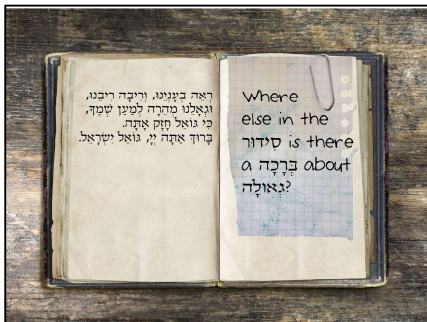 רְאֵה בְעָנְיֵנוּ, וְרִיבָה רִיבֵנוּ,
וּגְאָלֵנוּ מְהֵרָה לְמַעַן שְׁמֶךָ,
כִּי גּוֹאֵל חָזָק אָתָּה.
בָּרוּךְ אַתָּה יְיָ, גּוֹאֵל יִשְׂרָאֵל.
Where
else in the
סִידוּר is there
a בְּרָכָה about
גְאוּלָה?